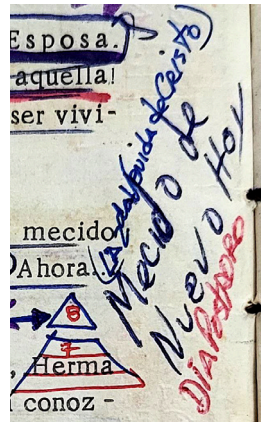 Esposa.
aquella!
ser vivi-
mecido
Ahora...
Herma
conoz-
(La edad novida de Cristo)
Mecido de
Nuevo Hoy
Dia Postrero
8
7